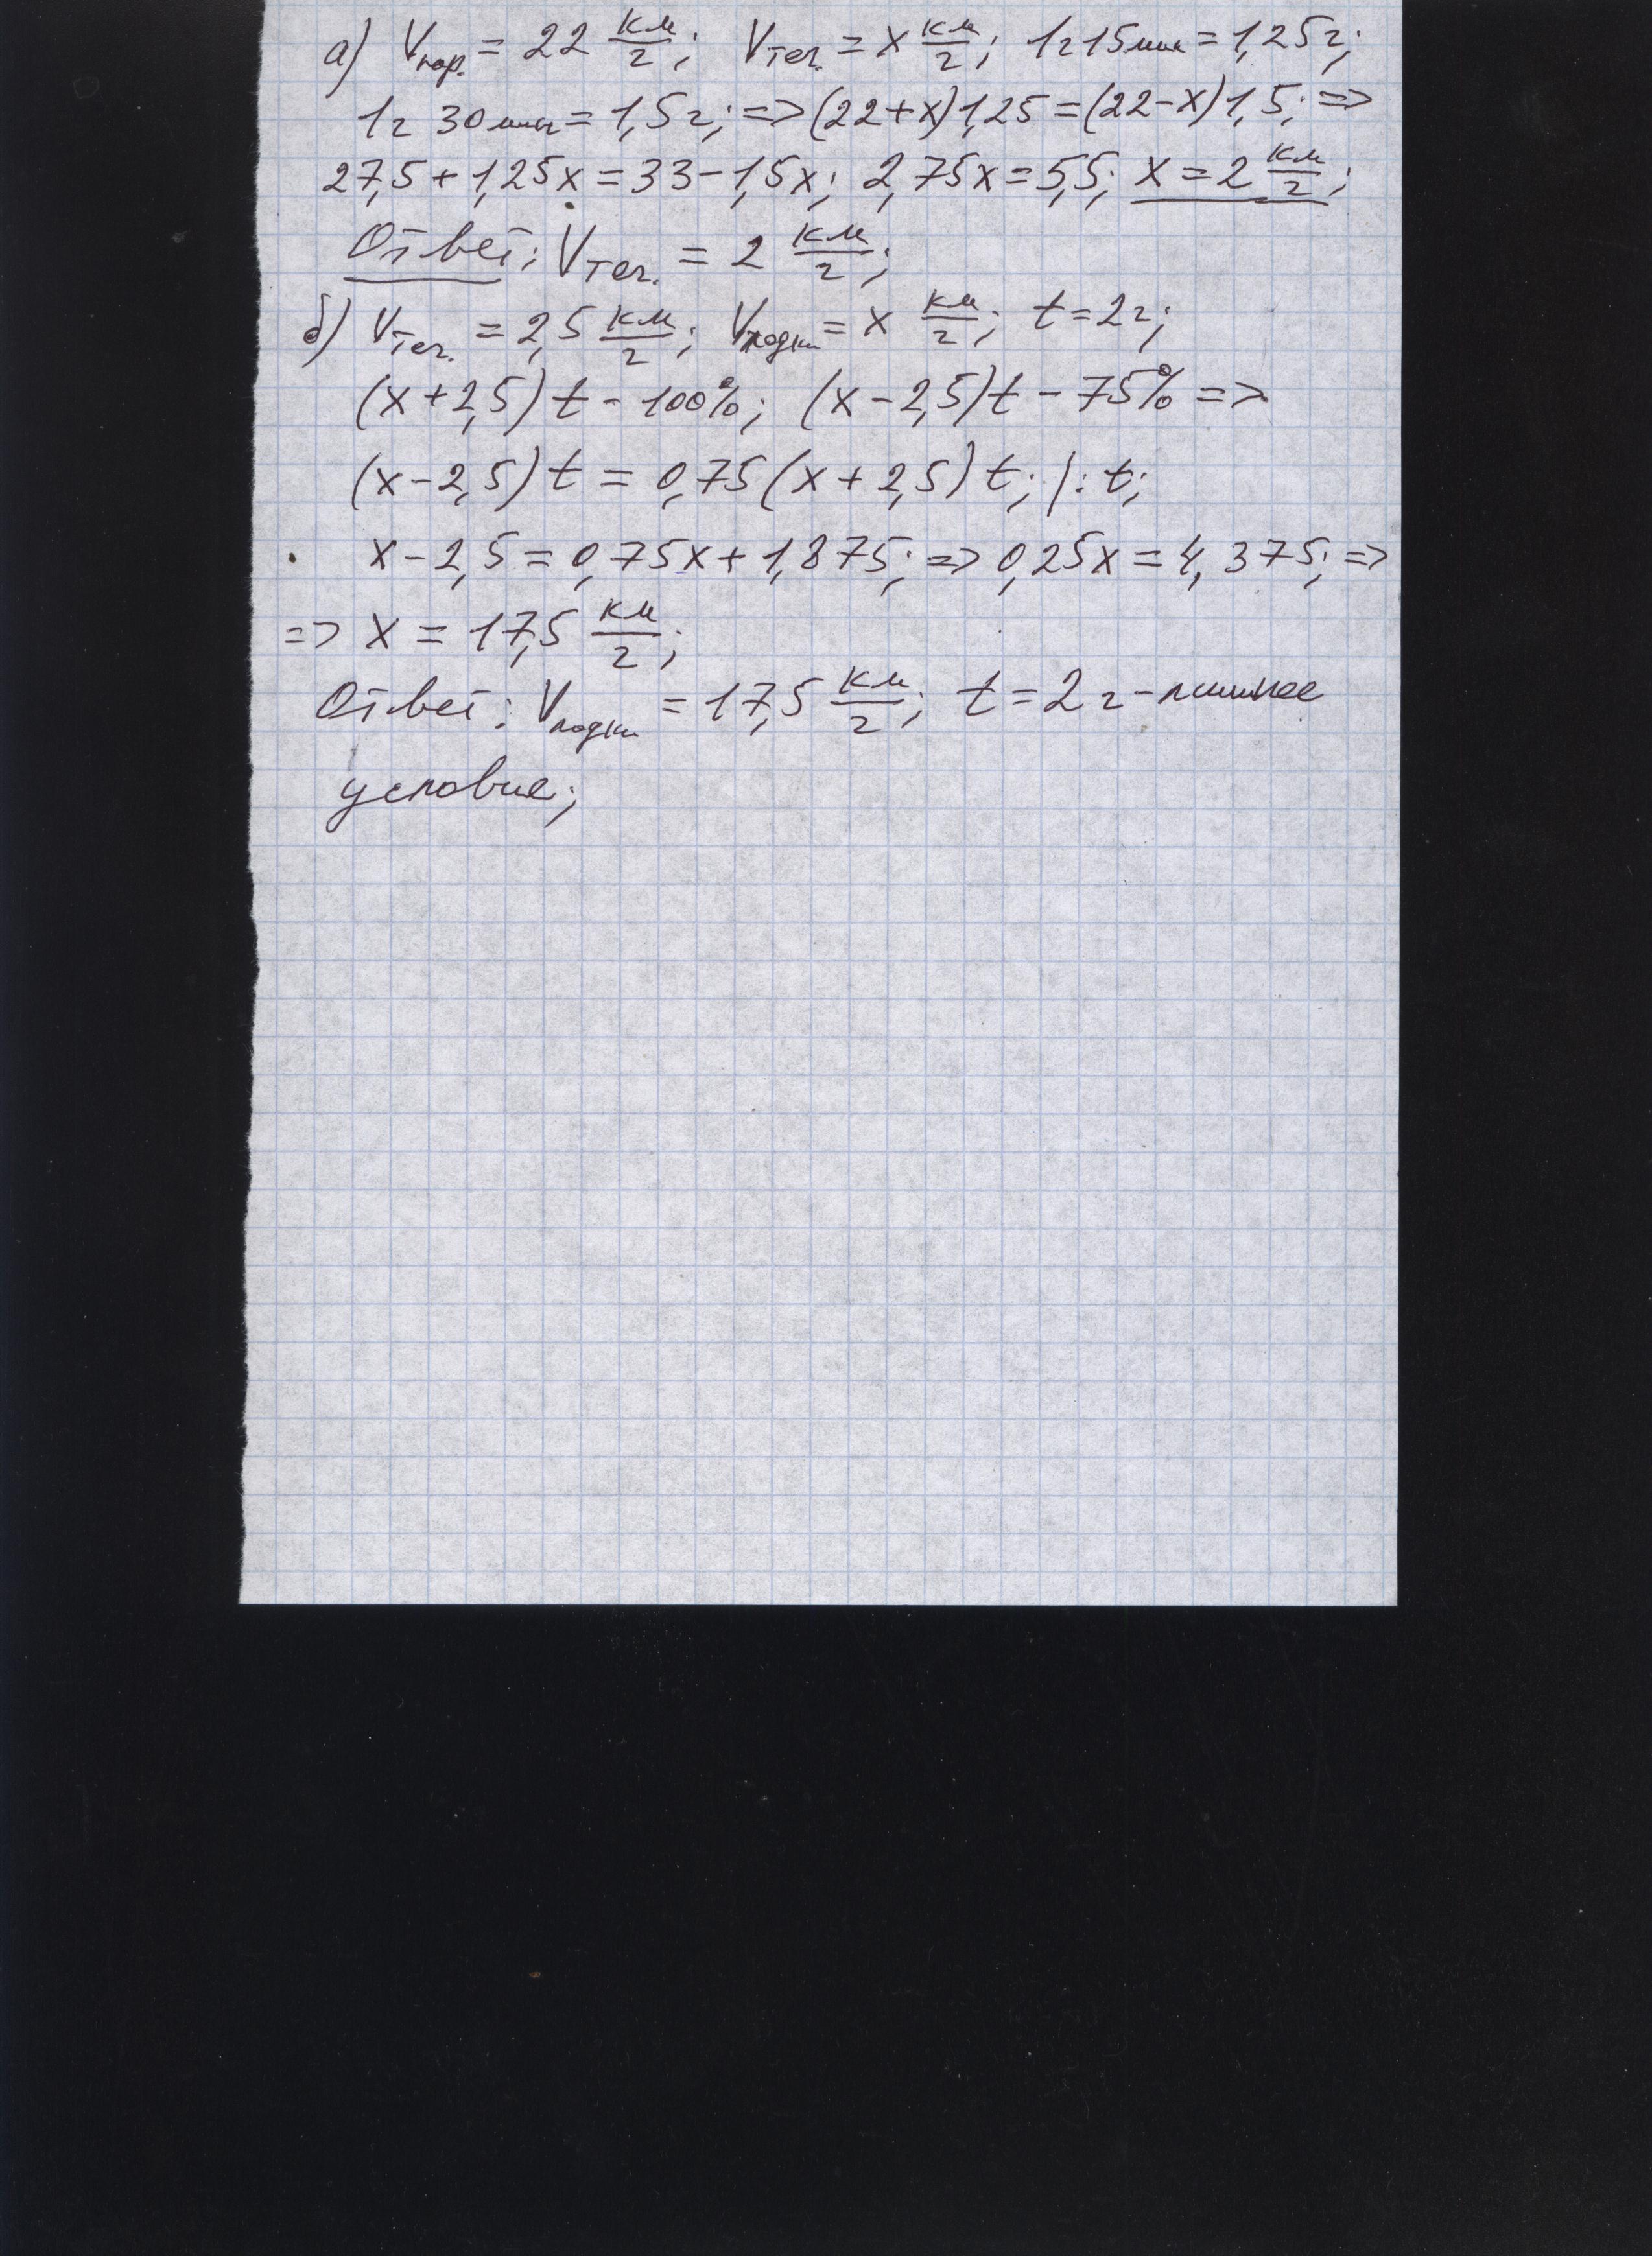 а) Vпар. = 22 км/г; Vтеч. = x км/г; 1г15мин = 1,25г;
1г 30мин = 1,5г; => (22+x)1,25 = (22-x)1,5; =>
27,5 + 1,25x = 33 - 1,5x; 2,75x = 5,5; x = 2 км/г;
Ответ: Vтеч. = 2 км/г;
б) Vтеч. = 2,5 км/г; Vлодки = x км/г; t = 2г;
(x + 2,5) t - 100%; (x - 2,5)t - 75% =>
(x - 2,5) t = 0,75 (x + 2,5) t; |: t;
x - 2,5 = 0,75x + 1,875; => 0,25x = 4,375; =>
=> x = 17,5 км/г;
Ответ: Vлодки = 17,5 км/г; t = 2г - лишнее
условие;